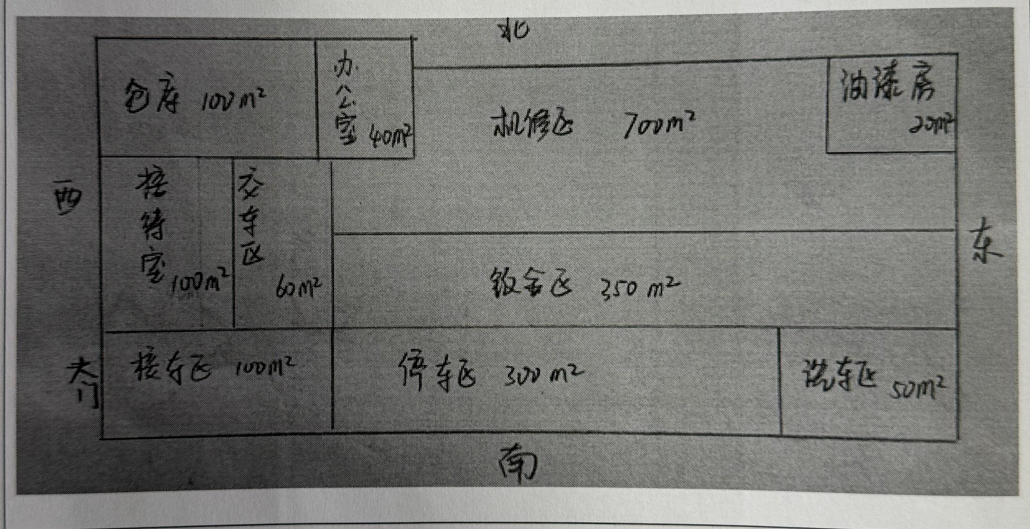 北
仓库 100m²
办公室 40m²
机修区 700m²
油漆房 20m²
西
接待室 100m²
交车区 60m²
东
钣金区 350m²
大门
接车区 100m²
停车区 300m²
洗车区 50m²
南